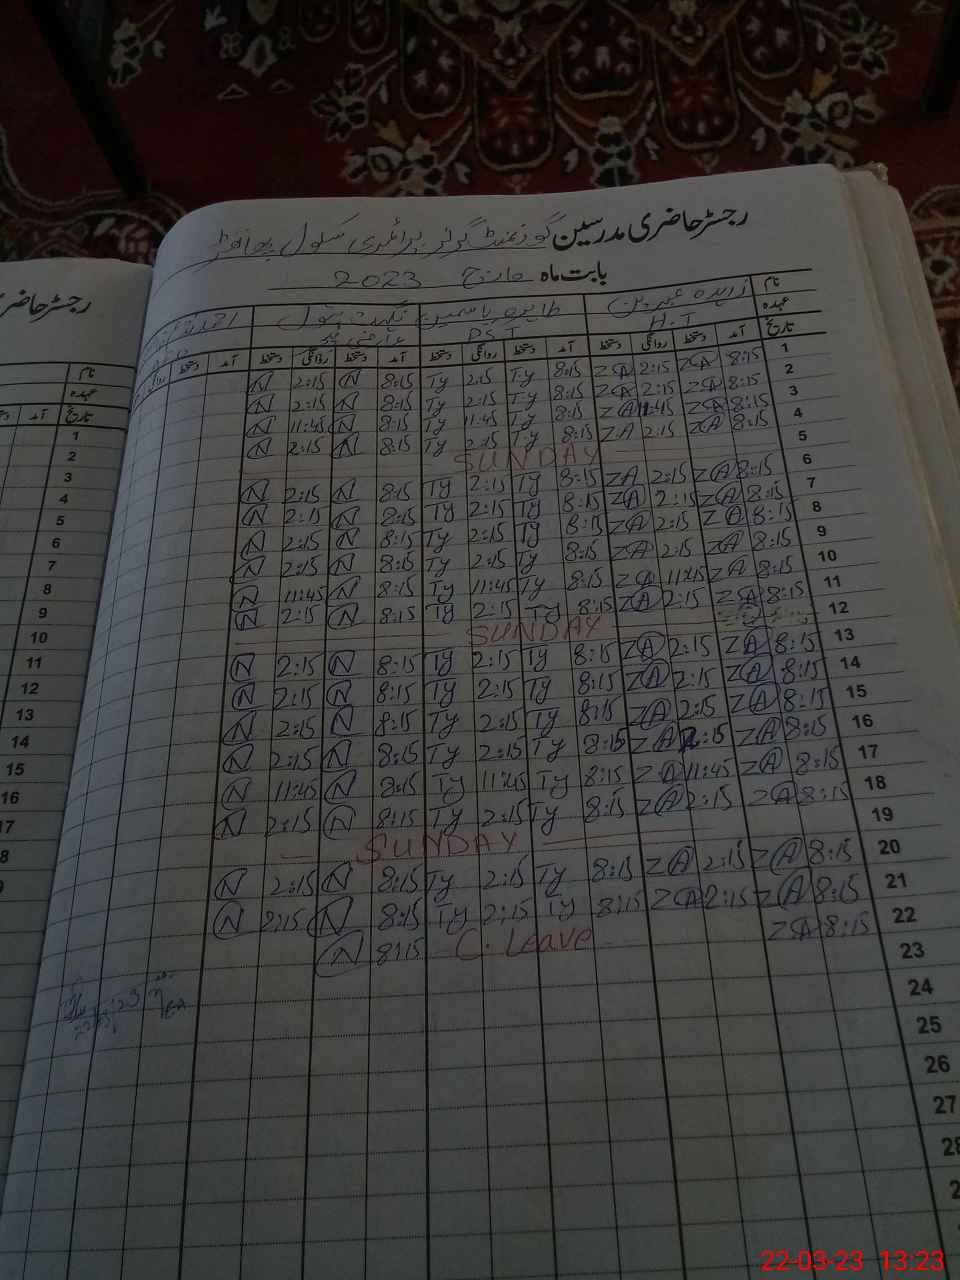 رجسٹر حاضری مدرسین گورنمنٹ گرلز پرائمری سکول
بابت ماہ مارچ 2023
نام زاہدہ عنبرین طاہرہ یاسمین نگہت بتول
عہدہ H.T PST عارضی
تاریخ آمد دستخط روانگی دستخط آمد دستخط روانگی دستخط آمد دستخط روانگی دستخط آمد دستخط روانگی
1 8:15 ZA 2:15 ZA 8:15 Ty 2:15 Ty 8:15 N 2:15 N
2 8:15 ZA 2:15 ZA 8:15 Ty 2:15 Ty 8:15 N 2:15 N
3 8:15 ZA 11:45 ZA 8:15 Ty 11:45 Ty 8:15 N 11:45 N
4 8:15 ZA 2:15 ZA 8:15 Ty 2:15 Ty 8:15 N 2:15 N
5 SUNDAY
6 8:15 ZA 2:15 ZA 8:15 Ty 2:15 Ty 8:15 N 2:15 N
7 8:15 ZA 2:15 ZA 8:15 Ty 2:15 Ty 8:15 N 2:15 N
8 8:15 ZA 2:15 ZA 8:15 Ty 2:15 Ty 8:15 N 2:15 N
9 8:15 ZA 2:15 ZA 8:15 Ty 2:15 Ty 8:15 N 2:15 N
10 8:15 ZA 11:45 ZA 8:15 Ty 11:45 Ty 8:15 N 11:45 N
11 8:15 ZA 2:15 ZA 8:15 Ty 2:15 Ty 8:15 N 2:15 N
12 SUNDAY
13 8:15 ZA 2:15 ZA 8:15 Ty 2:15 Ty 8:15 N 2:15 N
14 8:15 ZA 2:15 ZA 8:15 Ty 2:15 Ty 8:15 N 2:15 N
15 8:15 ZA 2:15 ZA 8:15 Ty 2:15 Ty 8:15 N 2:15 N
16 8:15 ZA 2:15 ZA 8:15 Ty 2:15 Ty 8:15 N 2:15 N
17 8:15 ZA 11:45 ZA 8:15 Ty 11:45 Ty 8:15 N 11:45 N
18 8:15 ZA 2:15 ZA 8:15 Ty 2:15 Ty 8:15 N 2:15 N
19 SUNDAY
20 8:15 ZA 2:15 ZA 8:15 Ty 2:15 Ty 8:15 N 2:15 N
21 8:15 ZA 2:15 ZA 8:15 Ty 2:15 Ty 8:15 N 2:15 N
22 8:15 ZA C. Leave 8:15 N
23
24
25
26
27
28
رجسٹر حاضر
نام
عہدہ
تاریخ آمد
1
2
3
4
5
6
7
8
9
10
11
12
13
14
15
16
17
22-03-23 13:23